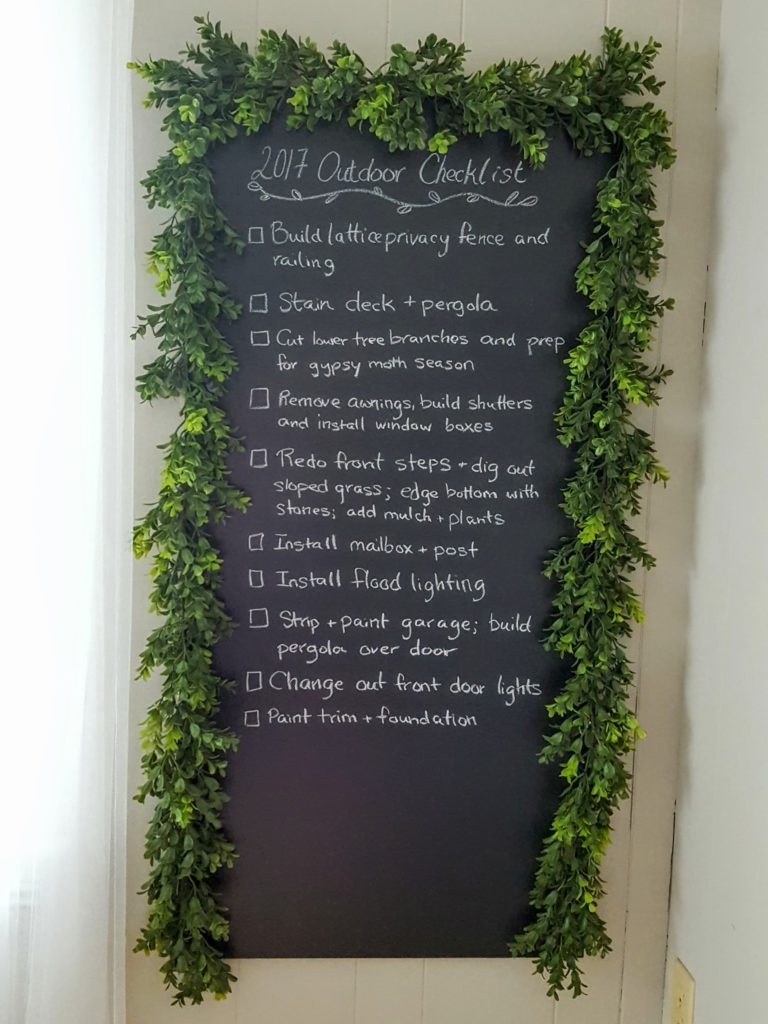 2017 Outdoor Checklist
Build lattice privacy fence and
railing
Stain deck + pergola
Cut lower tree branches and prep
for gypsy moth season
Remove awnings, build shutters
and install window boxes
Redo front steps + dig out
sloped grass; edge bottom with
stones; add mulch + plants
Install mailbox + post
Install flood lighting
Strip + paint garage; build
pergola over door
Change out front door lights
Paint trim + foundation